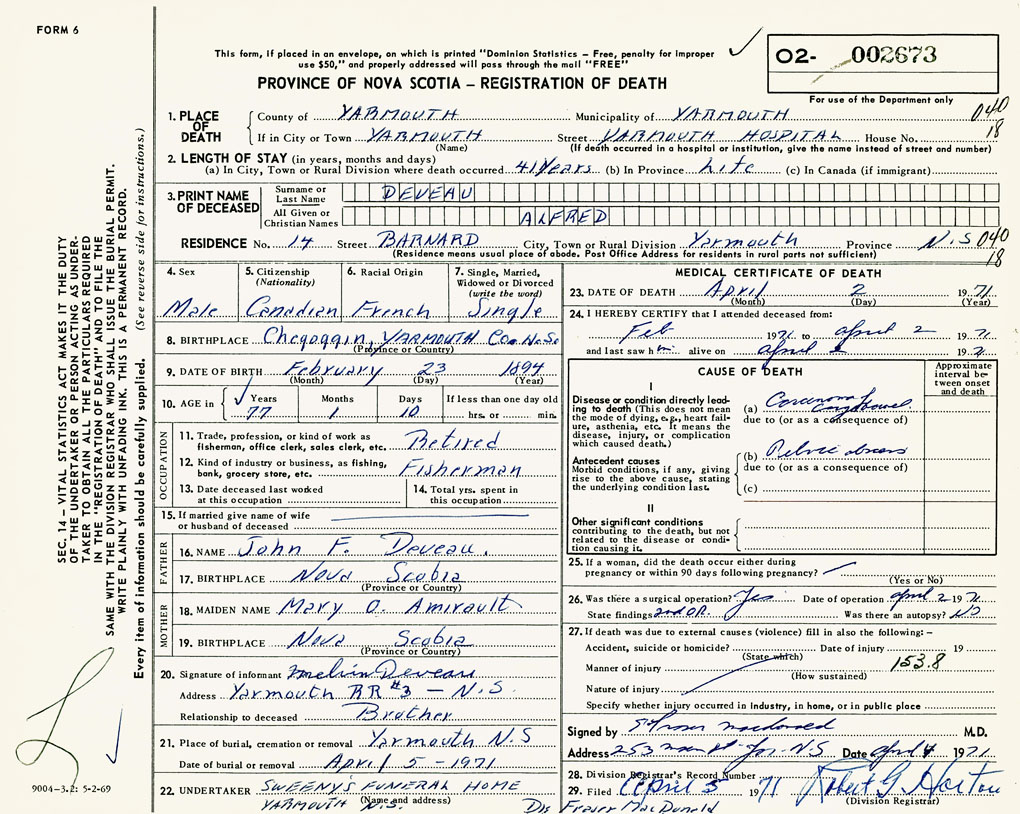 FORM 6
This form, if placed in an envelope, on which is printed "Dominion Statistics – Free, penalty for improper
use $50," and properly addressed will pass through the mail "FREE"
O2- 002673
For use of the Department only
PROVINCE OF NOVA SCOTIA – REGISTRATION OF DEATH
1. PLACE OF DEATH
County of YARMOUTH Municipality of YARMOUTH 040
If in City or Town YARMOUTH Street YARMOUTH HOSPITAL House No. 18
(Name) (If death occurred in a hospital or institution, give the name instead of street and number)
2. LENGTH OF STAY (in years, months and days)
(a) In City, Town or Rural Division where death occurred 41 years (b) In Province Life (c) In Canada (if immigrant)
3. PRINT NAME OF DECEASED
Surname or Last Name DEVEAU
All Given or Christian Names ALFRED
RESIDENCE No. 14 Street BARNARD City, Town or Rural Division Yarmouth Province N.S 040
(Residence means usual place of abode. Post Office Address for residents in rural parts not sufficient) 18
4. Sex
Male
5. Citizenship
(Nationality)
Canadian
6. Racial Origin
French
7. Single, Married,
Widowed or Divorced
(write the word)
Single
8. BIRTHPLACE Chegoggin, YARMOUTH Co. N.S.
(Province or Country)
9. DATE OF BIRTH February 23 1894
(Month) (Day) (Year)
10. AGE in
Years 77
Months 1
Days 10
If less than one day old
hrs. or min.
OCCUPATION
11. Trade, profession, or kind of work as
fisherman, office clerk, sales clerk, etc. Retired
12. Kind of industry or business, as fishing,
bank, grocery store, etc. Fisherman
13. Date deceased last worked
at this occupation
14. Total yrs. spent in
this occupation
15. If married give name of wife
or husband of deceased
FATHER
16. NAME John F. Deveau.
17. BIRTHPLACE Nova Scobia
(Province or Country)
MOTHER
18. MAIDEN NAME Mary O. Amirault
19. BIRTHPLACE Nova Scobia
(Province or Country)
20. Signature of informant Melvin Deveau
Address Yarmouth RR #3 – N.S.
Relationship to deceased Brother
21. Place of burial, cremation or removal Yarmouth N.S
Date of burial or removal April 5 - 1971
22. UNDERTAKER SWEENY'S FUNERAL HOME
(Name and address)
YARMOUTH N.S.
MEDICAL CERTIFICATE OF DEATH
23. DATE OF DEATH April 2 1971
(Month) (Day) (Year)
24. I HEREBY CERTIFY that I attended deceased from:
Feb 1971 to April 2 1971
and last saw him alive on April 2 1971
CAUSE OF DEATH
Approximate
interval be-
tween onset
and death
I
Disease or condition directly lead-
ing to death (This does not mean
the mode of dying, e.g., heart failure,
asthenia, etc. It means the
disease, injury, or complication
which caused death.)
(a) Carcinoma
due to (or as a consequence of)
Antecedent causes
Morbid conditions, if any, giving
rise to the above cause, stating
the underlying condition last.
(b) Pelvic
due to (or as a consequence of)
(c)
II
Other significant conditions
contributing to the death, but not
related to the disease or condi-
tion causing it.
25. If a woman, did the death occur either during
pregnancy or within 90 days following pregnancy?
(Yes or No)
26. Was there a surgical operation? Yes Date of operation April 2 1971
State findings and OR. Was there an autopsy? No
27. If death was due to external causes (violence) fill in also the following: –
Accident, suicide or homicide? Date of injury 19
(State which) 153.8
Manner of injury
(How sustained)
Nature of injury
Specify whether injury occurred in industry, in home, or in public place
Signed by S Fraser Macdonald M.D.
Address 253 Main St Yar. N.S. Date April 4 1971
28. Division Registrar's Record Number
29. Filed April 5 1971 Robert G. Horton
(Division Registrar)
Dr. Fraser MacDonald
SEC. 14 – VITAL STATISTICS ACT MAKES IT THE DUTY
OF THE UNDERTAKER OR PERSON ACTING AS UNDER-
TAKER TO OBTAIN ALL THE PARTICULARS REQUIRED
IN THE "REGISTRATION OF DEATH" AND TO FILE THE
SAME WITH THE DIVISION REGISTRAR WHO SHALL ISSUE THE BURIAL PERMIT.
WRITE PLAINLY WITH UNFADING INK. THIS IS A PERMANENT RECORD.
Every item of information should be carefully supplied. (See reverse side for instructions.)
9004-3.2: 5-2-69